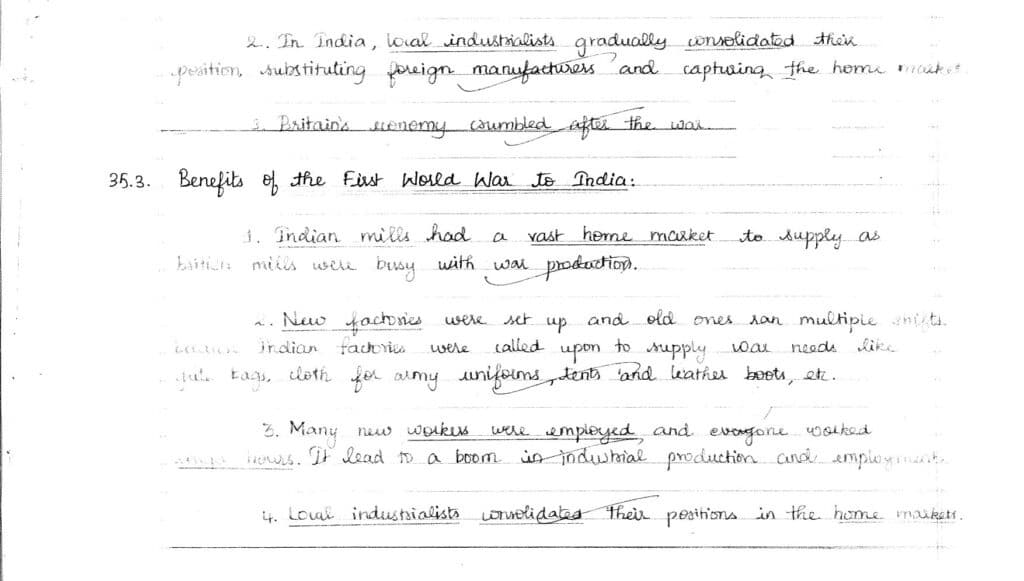 2. In India, local industrialists gradually consolidated their
position, substituting foreign manufacturers and capturing the home market.
3. Britain's economy crumbled after the war.
35.3. Benefits of the First World War to India:
1. Indian mills had a vast home market to supply as
british mills were busy with war production.
2. New factories were set up and old ones ran multiple shifts.
because indian factories were called upon to supply war needs like
jute bags, cloth for army uniforms, tents and leather boots, etc.
3. Many new workers were employed and everyone worked
hours. It lead to a boom in industrial production and employment.
4. Local industrialists consolidated their positions in the home markets.